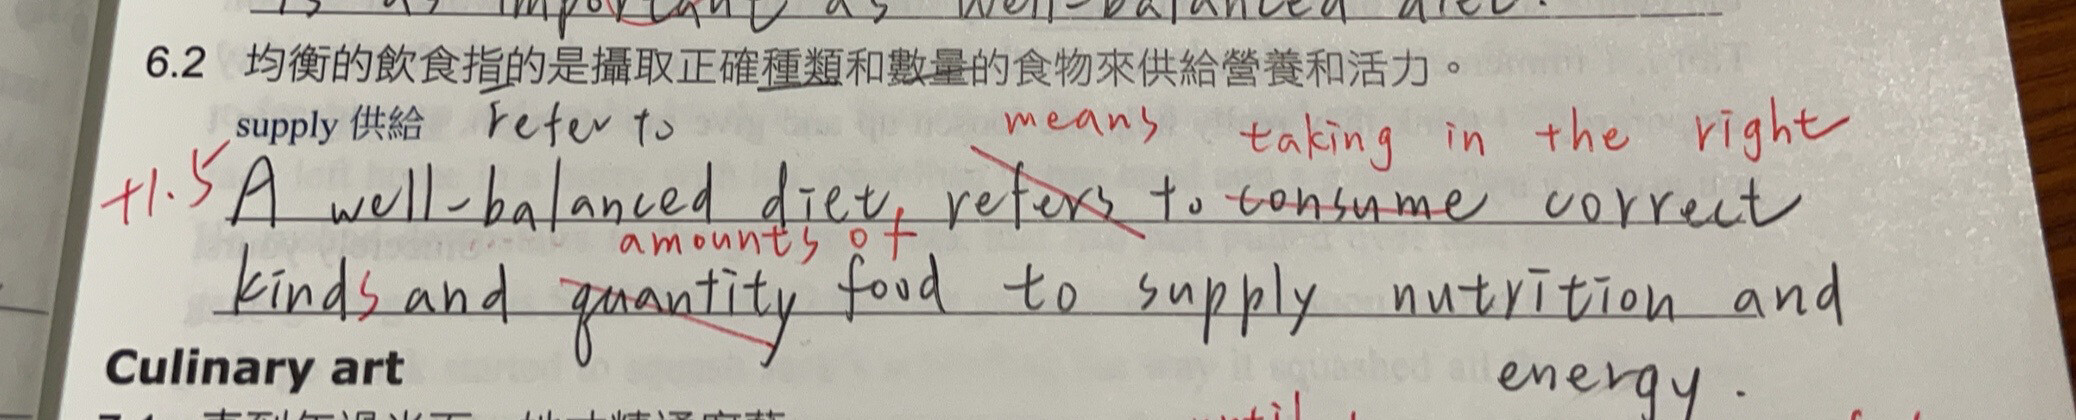 is as important as well-balanced diet.
6.2 均衡的飲食指的是攝取正確種類和數量的食物來供給營養和活力。
supply 供給 refer to means taking in the right
+1.5 A well-balanced diet, refers to consume correct
amounts of
kinds and quantity food to supply nutrition and
Culinary art energy.
until